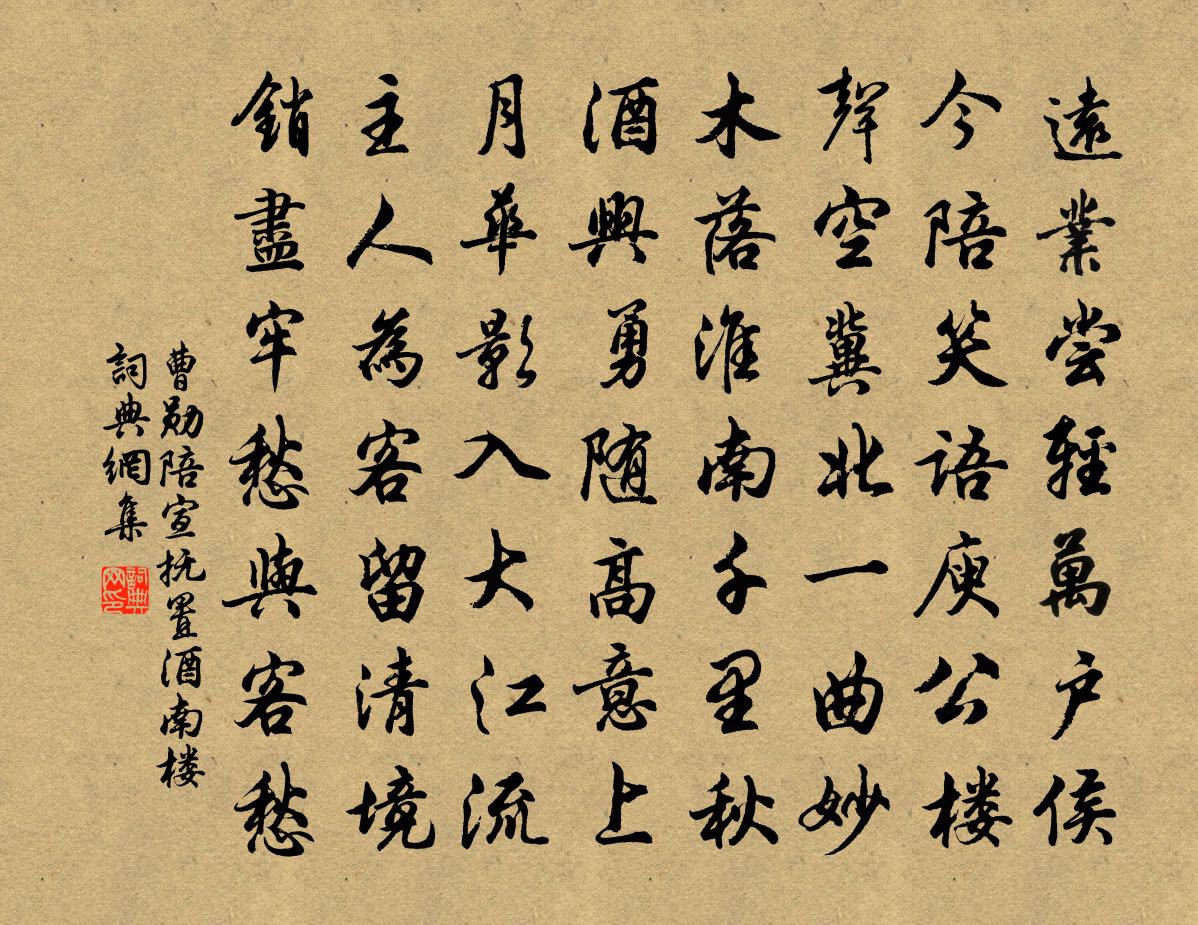 遠業嘗輕萬户侯
今陪笑語庾公楼
聲空冀北一曲妙
木落淮南千里秋
酒興勇随高意上
月華影入大江流
主人為客留清境
銷盡牢愁與客愁
曹勛陪宣抚置酒南楼
詞典網集
詞典网印